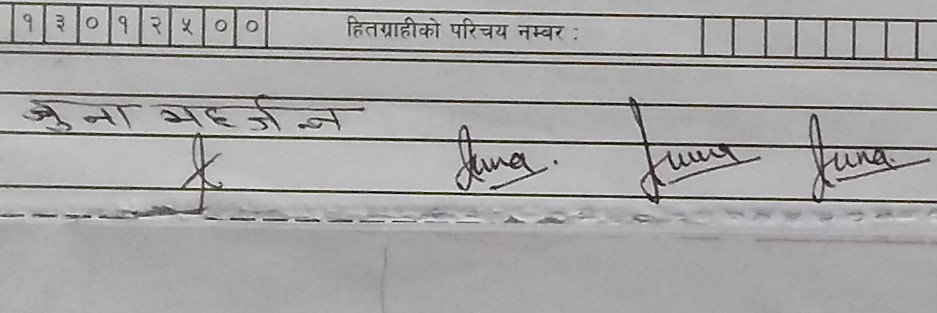 १३०१२५०० हितग्राहीको परिचय नम्बर :
जुना महर्जन
Juna. Juna Juna